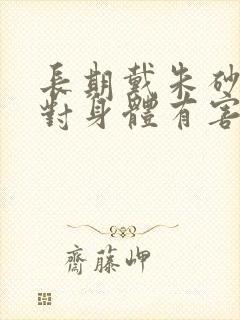 長期戴朱砂
對身體有害
齋藤岬